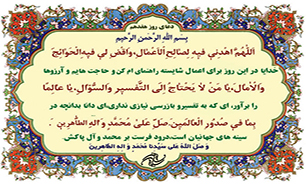 دعای روز هفدهم
بِسْمِ اللَّهِ الرَّحْمَنِ الرَّحِيمِ
اَللّهُمَّ اهْدِنی فیهِ لِصالِحِ الْاَعْمالِ، وَاقْضِ لی فیهِ الْحَوائِجَ
خدایا در این روز برای اعمال شایسته راهنمای ام کن و حاجت هایم و آرزوها
وَالْآمالَ، یا مَنْ لا یَحْتاجُ اِلَی التَّفْسیرِ وَالسُّؤالِ، یا عالِماً
را برآور، ای که به تفسیر و بازرسی نیازی نداری ای دانا بدانچه در
بِما فی صُدُورِ الْعالَمینَ، صَلِّ عَلی مُحَمَّدٍ وَ الِهِ الطّاهِرینَ
سینه های جهانیان است درود فرست بر محمد و آل پاکش
وَ صَلَّ اللهُ عَلی سَیِّدِنا مُحَمَّدٍ وَ الِهِ الطّاهِرینَ